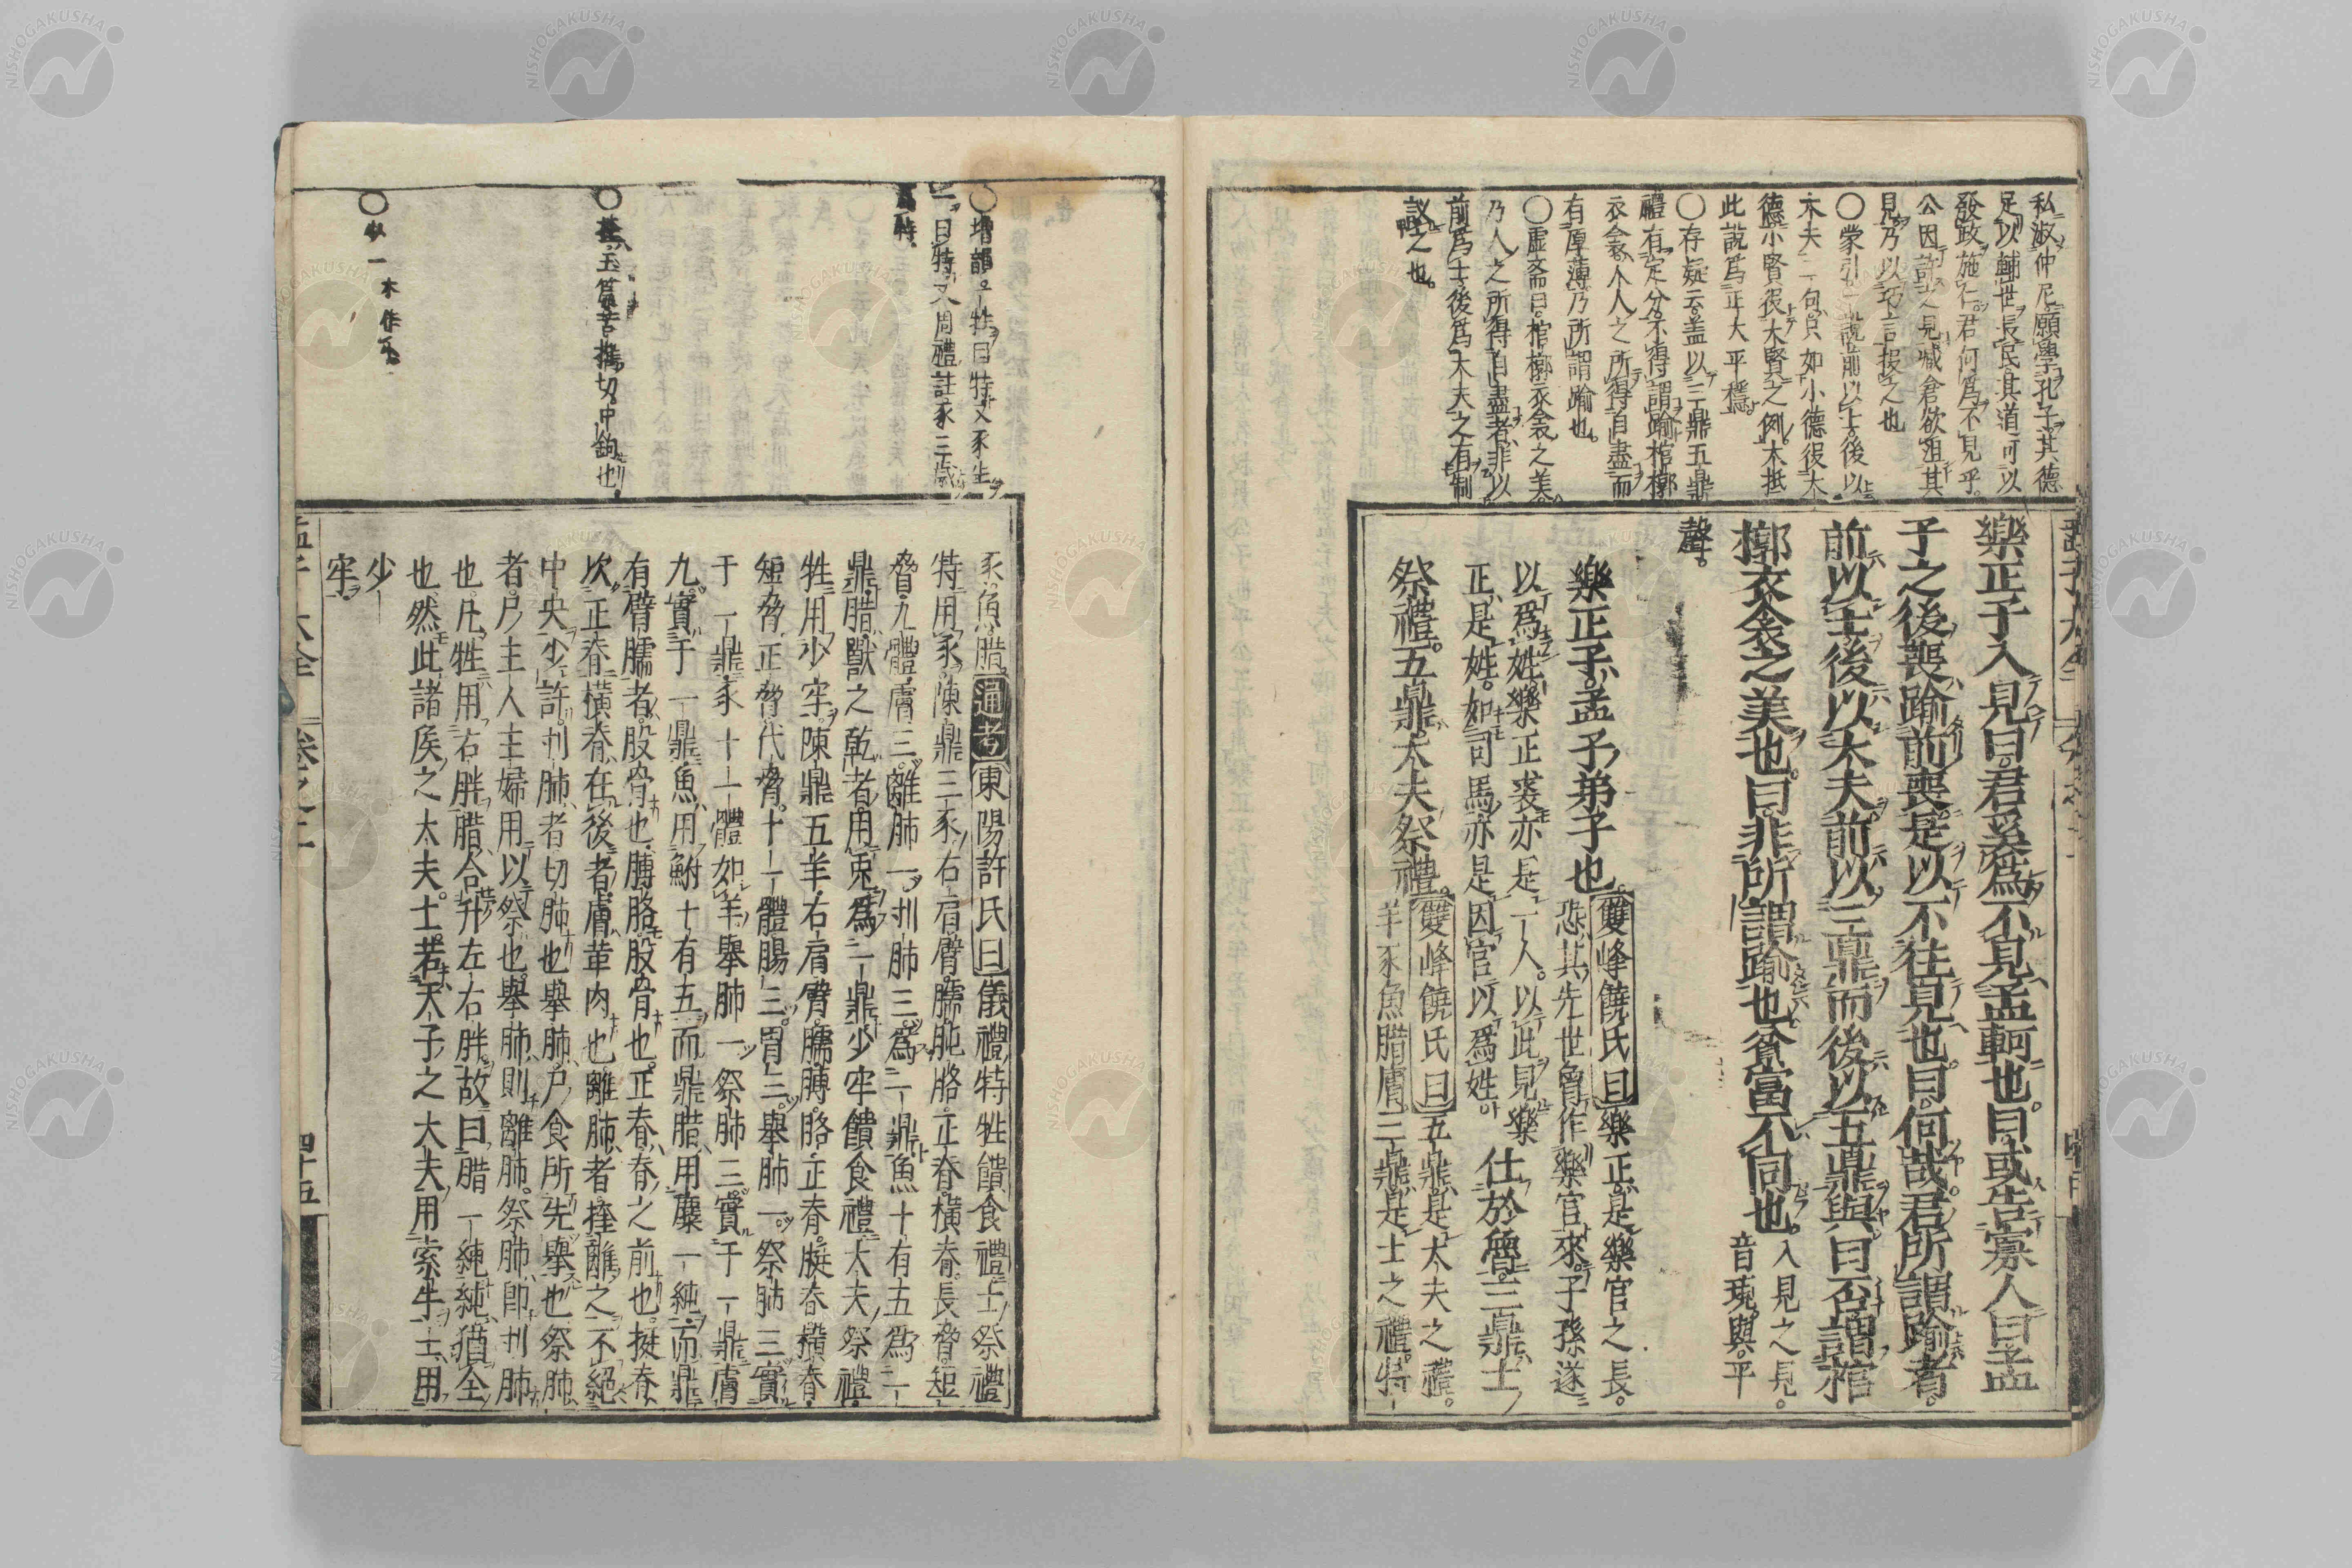 私淑仲尼願學孔子其德
足以輔世長民其道可以
發政施仁君何爲不見乎
公因許之見臧倉欲沮其
見乃以巧言投之也
〇蒙引一說前以士後以
大夫二句只如小德役大
德小賢役大賢之例大抵
此說爲正大平穩
〇存疑云蓋以三鼎五鼎
禮有定分不得謂踰棺槨
衣衾人人之所得自盡而
有厚薄乃所謂踰也
〇虛齋曰棺槨衣衾之美
乃人之所得自盡者非以
前爲士後爲大夫之有制
議之也
樂正子入見曰君奚爲不見孟軻也曰或告寡人曰孟
子之後喪踰前喪是以不往見也曰何哉君所謂踰者
前以士後以大夫前以三鼎而後以五鼎與曰否謂棺
槨衣衾之美也曰非所謂踰也貧富不同也入見之見
音現與平
聲
樂正子孟子弟子也雙峰饒氏曰樂正是樂官之長
恐其先世曾作樂官來子孫遂
以爲姓樂正裘亦是一人以此見樂
正是姓如司馬亦是因官以爲姓仕於魯三鼎士
祭禮五鼎大夫祭禮雙峰饒氏曰五鼎是大夫之禮
羊豕魚腊膚三鼎是士之禮特
〇增韻一牲曰特又豕生
一曰特又周禮註豕三歲
爲特
〇玉篇苦携切中鉤也
〇一本作
豕魚腊通考東陽許氏曰儀禮特牲饋食禮士祭禮
特用豕陳鼎三豕右肩臂臑肫胳正脊橫脊長脅短
脅九體膚三離肺一刌肺三爲一鼎魚十有五爲一
鼎腊獸之乾者用兎爲一鼎少牢饋食禮大夫祭禮
牲用少牢陳鼎五羊右肩臂臑膊胳正脊脡脊橫脊
短脅正脅代脅十一體腸三胃三舉肺一祭肺三實
于一鼎豕十一體如羊舉肺一祭肺三實于一鼎膚
九實于一鼎魚用鮒十有五而鼎腊用麋一純而鼎
有臂臑者股骨也膊胳股骨也正脊脊之前也挺脊
次正脊橫脊在後者膚革肉也離肺者挃離之不絕
中央少許刌肺者切肺也舉肺尸食所先舉也祭肺
者尸主人主婦用以祭也舉肺則離肺祭肺卽刌肺
也凡牲用右胖腊合升左右胖故曰腊一純純猶全
也然此諸侯之大夫士若天子之大夫用索牛士用
少
牢
孟子大全 卷之二 四十五